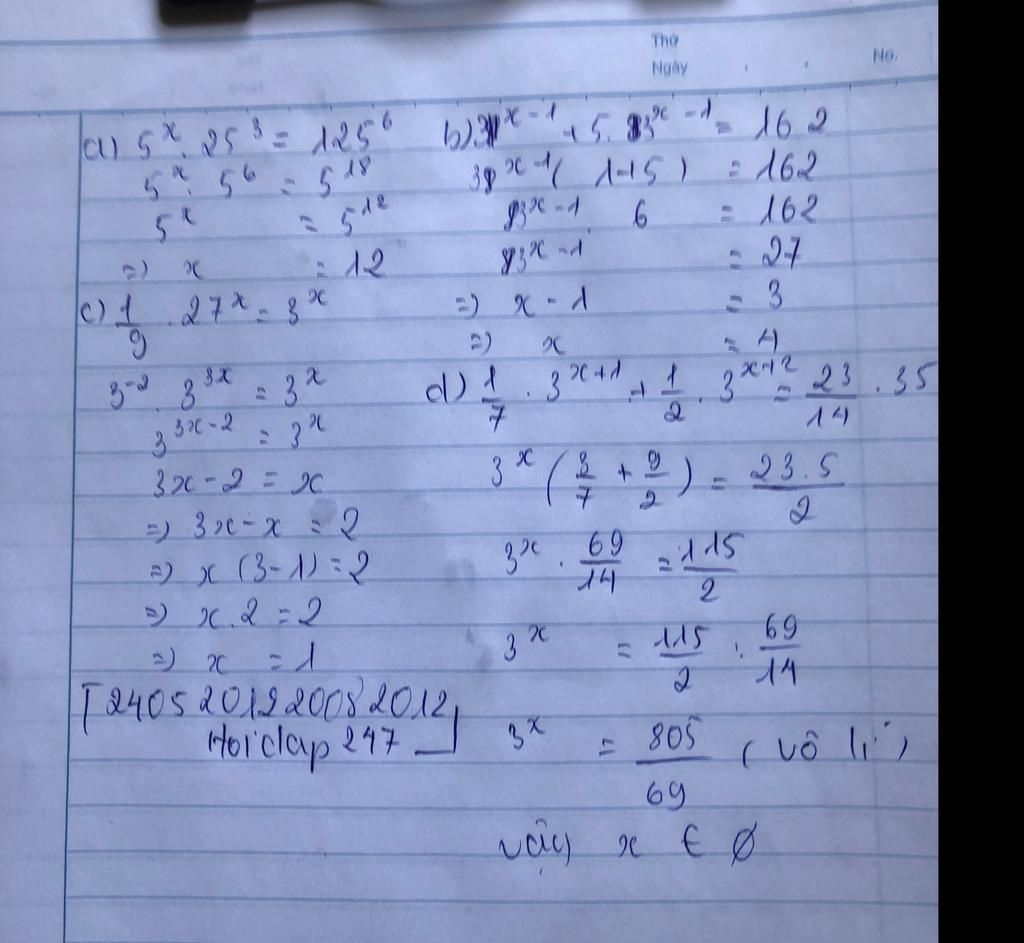 Thứ
Ngày
No.
a) 5^x . 25^3 = 125^6
5^x . 5^6 = 5^18
5^x = 5^12
=) x = 12
b) 3^x-1 + 5 . 3^x-1 = 162
3^x-1 ( 1+5 ) = 162
3^x-1 . 6 = 162
3^x-1 = 27
=) x - 1 = 3
=) x = 4
c) 1/9 . 27^x = 3^x
3^-2 . 3^3x = 3^x
3^3x-2 = 3^x
3x - 2 = x
=) 3x - x = 2
=) x (3 - 1) = 2
=) x . 2 = 2
=) x = 1
d) 1/7 . 3^x+1 + 1/2 . 3^x+2 = 23/14 . 35
3^x ( 3/7 + 9/2 ) = 23.5/2
3^x . 69/14 = 115/2
3^x = 115/2 : 69/14
3^x = 805/69 ( vô lí )
vậy x € Ø
2405201220082012
Hoidap 247